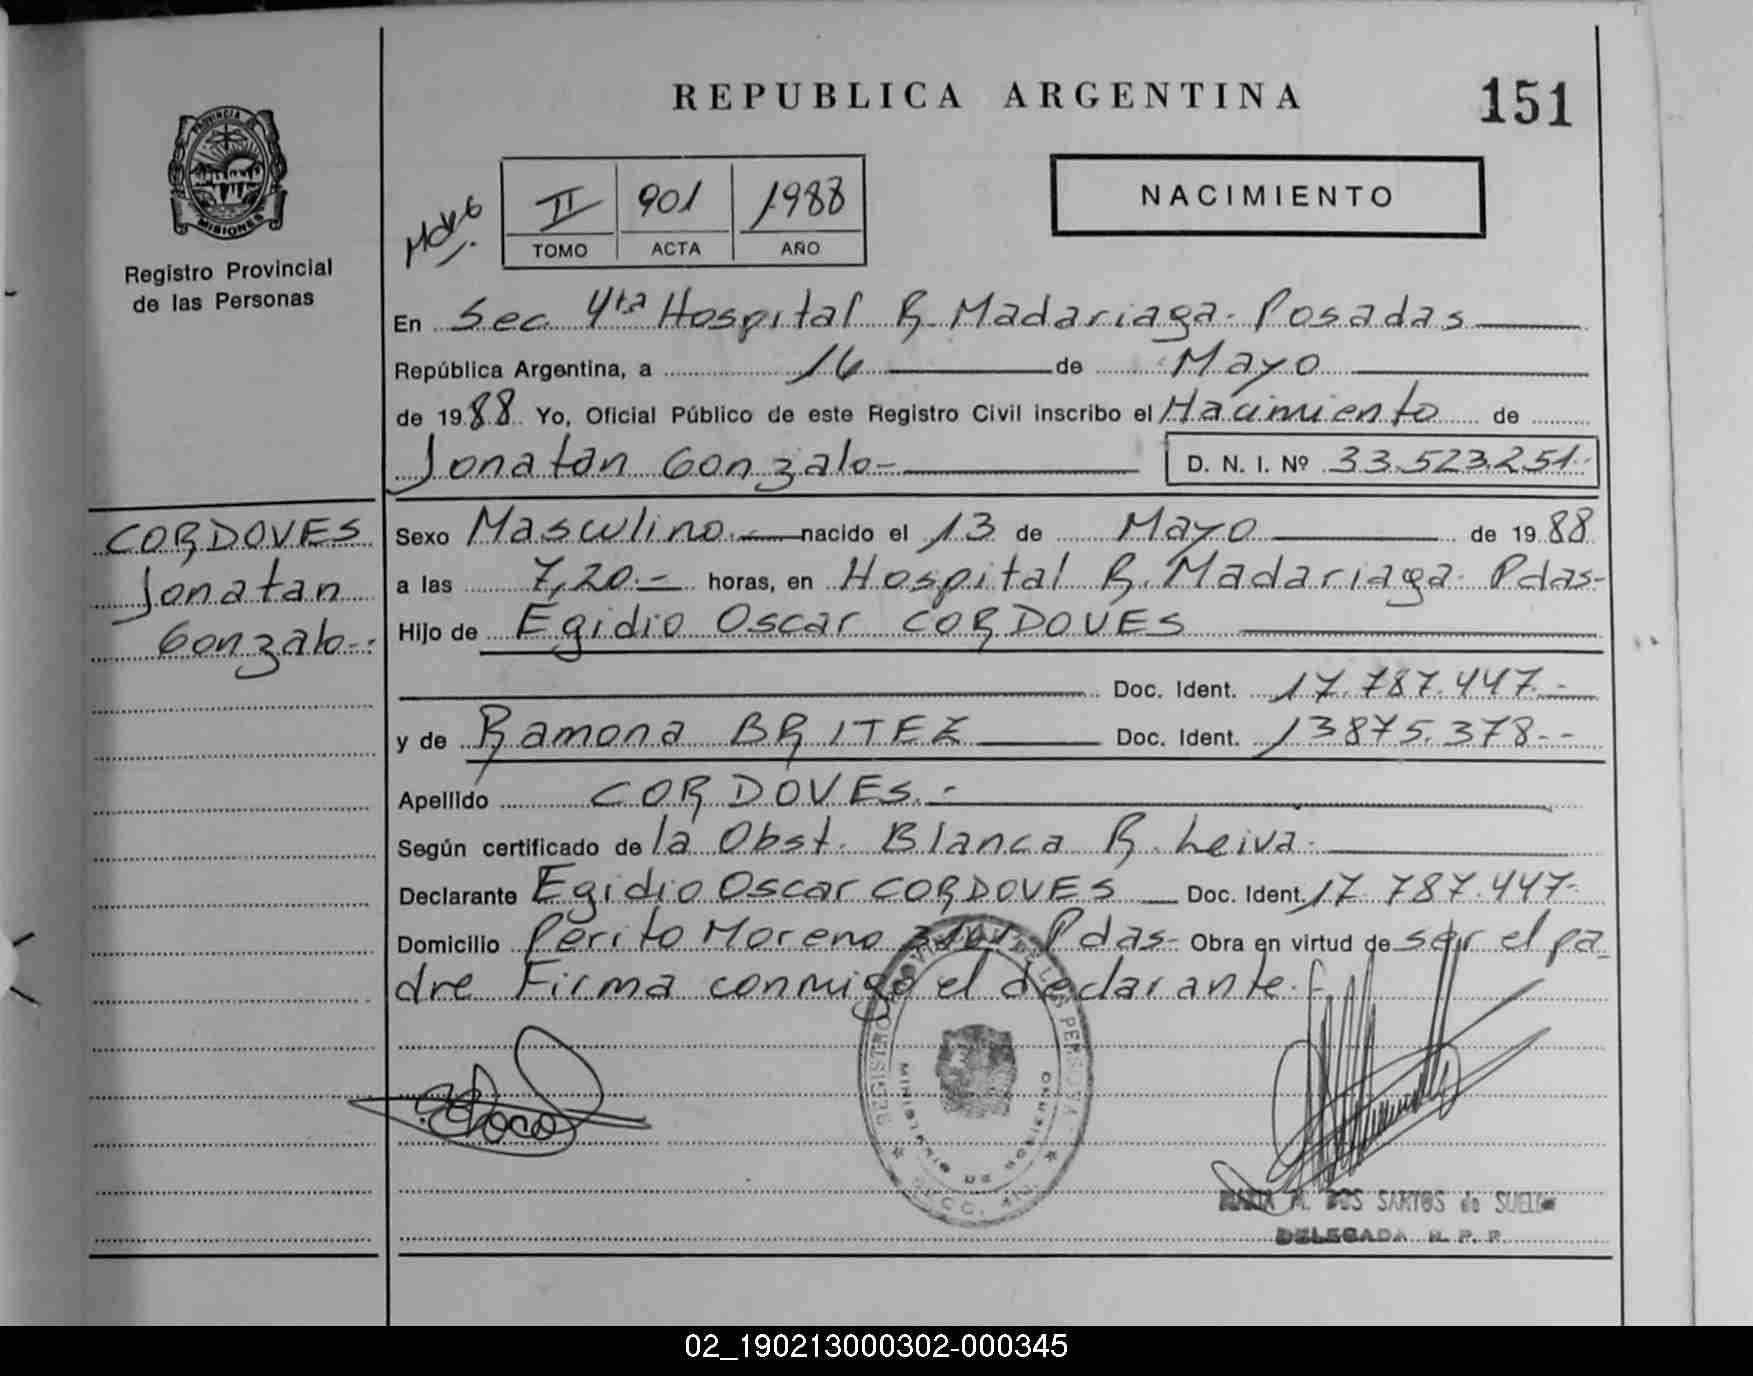 REPUBLICA ARGENTINA
151
PROVINCIA DE
MISIONES
Registro Provincial
de las Personas
II 901 1988
TOMO ACTA AÑO
NACIMIENTO
En Sec. 4ta Hospital R. Madariaga. Posadas
República Argentina, a 16 de Mayo
de 1988. Yo, Oficial Público de este Registro Civil inscribo el Nacimiento de
Jonatan Gonzalo-
D. N. I. Nº 33.523.251.-
CORDOVES
Jonatan
Gonzalo.-
Sexo Masculino.- nacido el 13 de Mayo de 1988
a las 7,20.- horas, en Hospital R. Madariaga. Pdas-
Hijo de Egidio Oscar CORDOVES
Doc. Ident. 17.787.447.-
y de Ramona BRITEZ Doc. Ident. 13875.378--
Apellido CORDOVES.-
Según certificado de la Obst. Blanca R. Leiva.
Declarante Egidio Oscar CORDOVES Doc. Ident. 17.787.447-
Domicilio Perito Moreno Pdas- Obra en virtud de ser el pa-
dre Firma conmigo el declarante.
DOS SANTOS de
DELEGADA R. P. P.
02_190213000302-000345